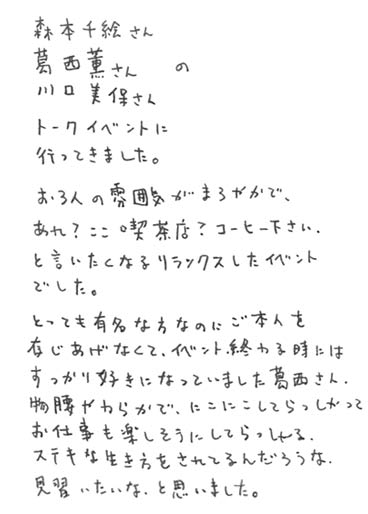 森本千絵さん
葛西薫さん の
川口美保さん
トークイベントに
行ってきました。
お3人の雰囲気がまろやかで、
あれ?ここ喫茶店?コーヒー下さい.
と言いたくなるリラックスしたイベント
でした。
とっても有名な方なのにご本人を
存じあげなくて、イベント終わる時には
すっかり好きになっていました葛西さん.
物腰やわらかで、にこにこしてらっしゃって
お仕事も楽しそうにしてらっしゃる.
ステキな生き方をされてるんだろうな.
見習いたいな.と思いました。